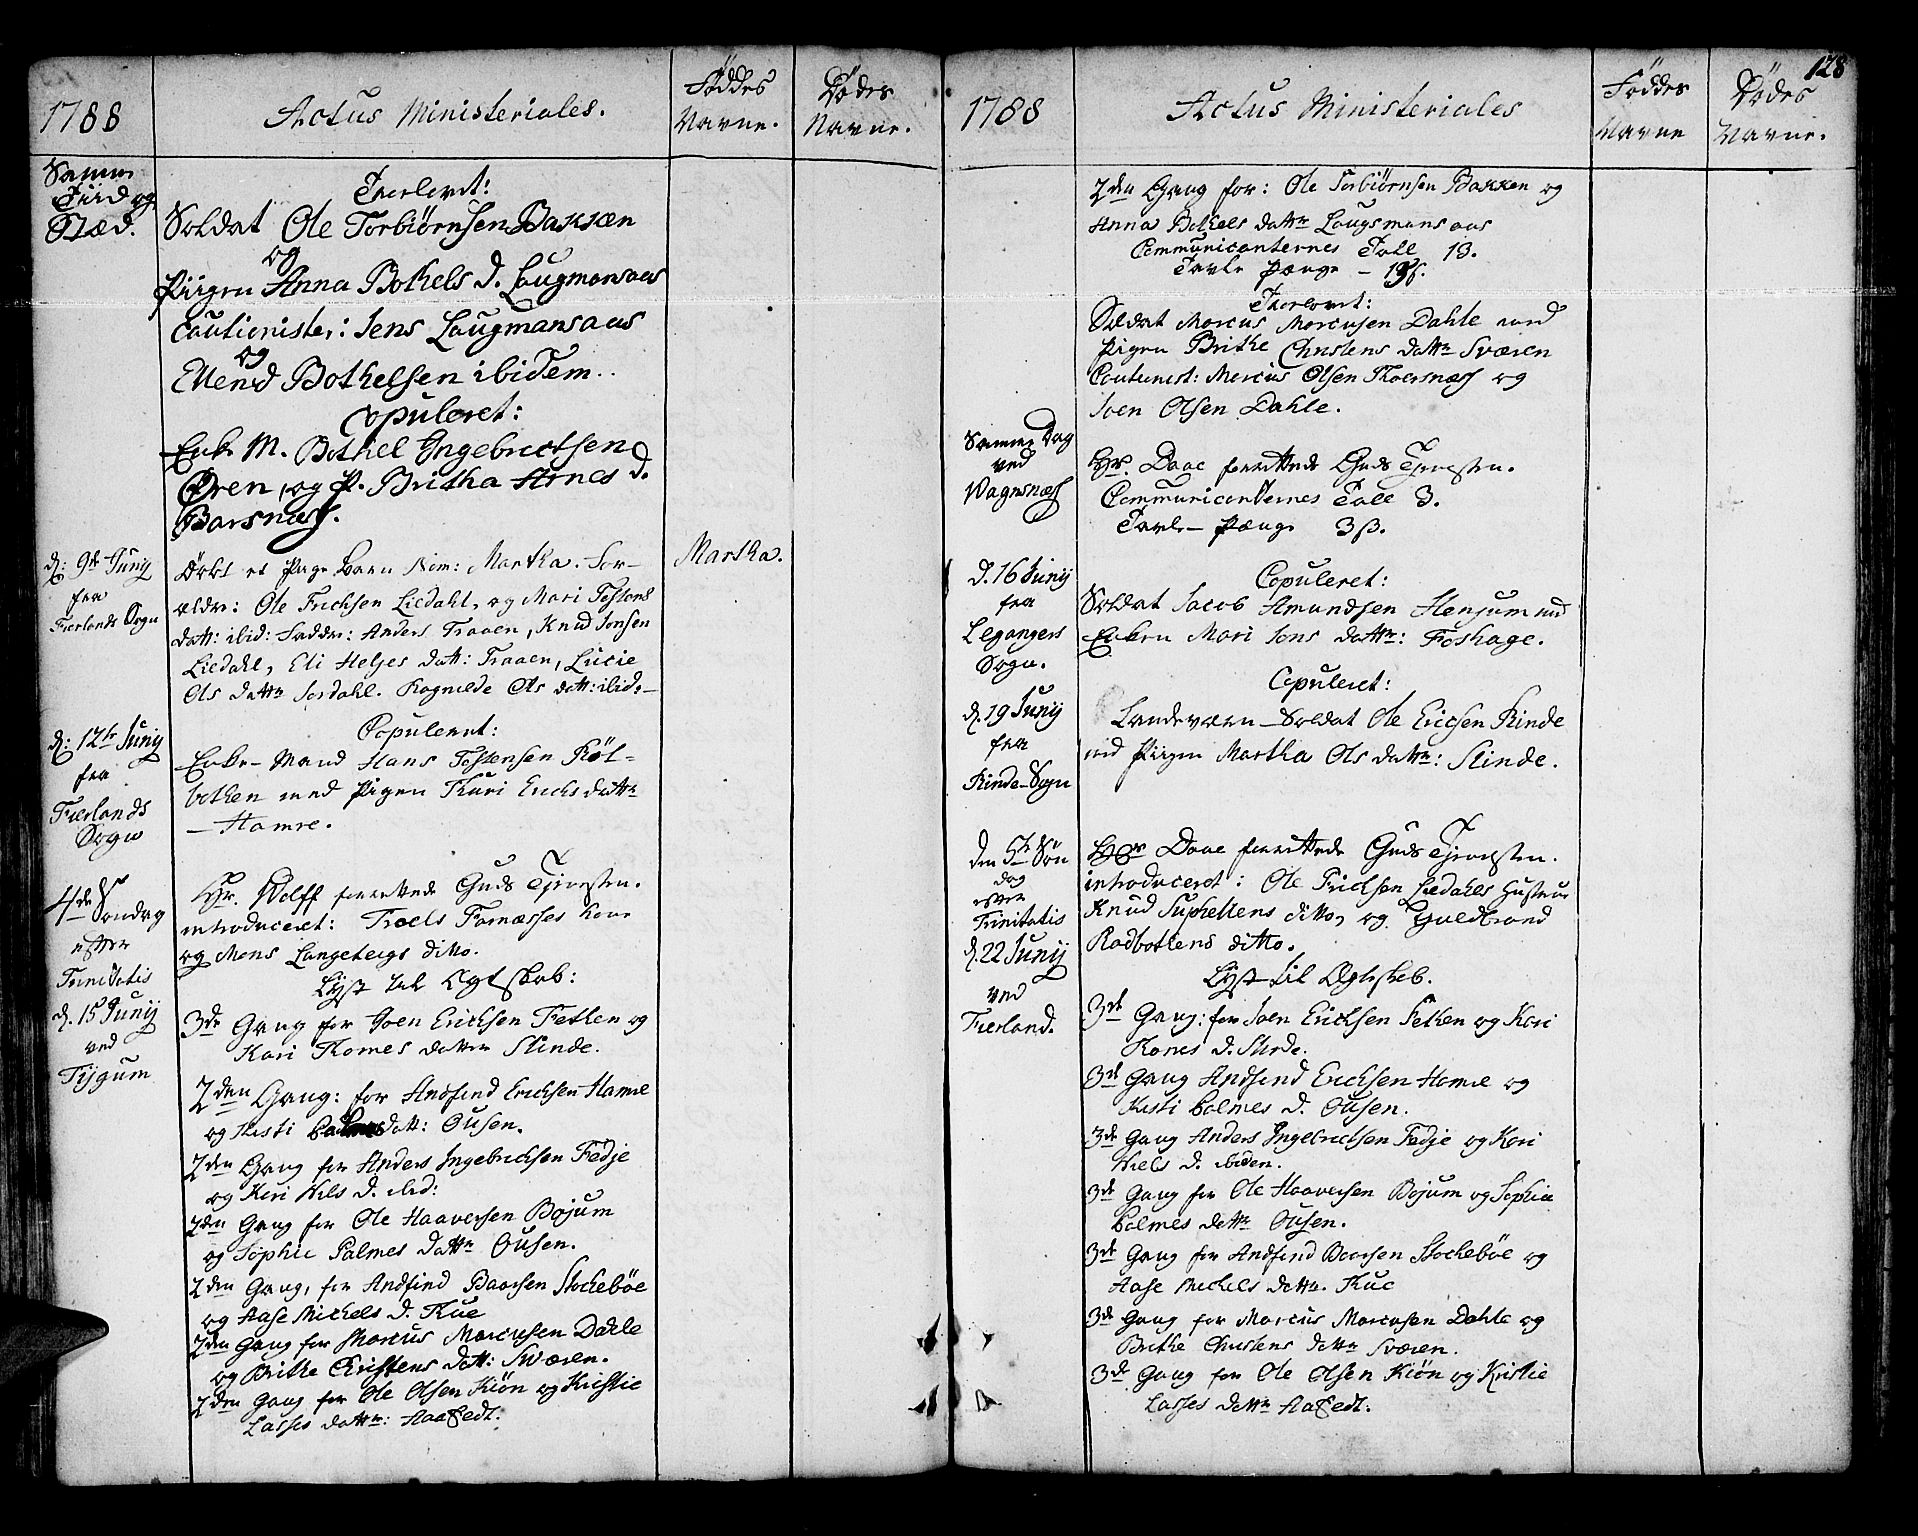 1788
Actus Ministeriales.
Føddes
Navne.
Dødes
Navne.
Samme
Tiid og
Stæd.
Troelovet:
Soldat Ole Torbiørnsen Bakken
og
Piigen Anna Bothels D. Laugmansaas
Cautionister: Jens Laugmansaas
og
Ellend Bothelsen ibidem.
Copuleret:
Enke M. Bothel Ingebrectsen
Øren, og P. Britha Arnes D.
Barsnæs.
d: 9de Junij
fra
Fierlands Sogn
Døbt et Pige Barn Nom: Martha. For-
ældre: Ole Frichsen Liedahl, og Mari Tostens
datt: ibid: Faddere: Anders Traaen, Knud Jonsen
Liedahl, Eli Helies datt: Traaen, Lucie
Ols datter Jordahl. Ragnilde Ols datt: ibid:
Martha.
d: 12te Junij
fra
Fierlands
Sogn
Copuleret:
Enke-Mand Hans Tostensen Røt-
bothen med Pigen Thuri Erichs datter
Hamre.
4de Søndag
efter
Trinitatis
d. 15 Junij
ved
Tijgum
Hr. Wolff forrettede Guds Tjenesten.
introduceret: Troels Farnæsses Kone
og Mons Langeteigs ditto.
Lyst til Ægteskab:
3de Gang for Joen Erichsen Fethen og
Kari Thomes datter Slinde.
2den Gang: for Andfind Erichsen Hamre
og Kisti datt: Ousen.
2den Gang for Anders Ingebrichsen Fedje
og Kari Niels D. ibid:
2den Gang for Ole Haaversen Bøjum
og Sophie Palmes datter Ousen.
2den Gang, for Andfind Baarsen Stochebøe
og Aase Michels D. Kue
2den Gang for Marcus Marcusen Dahle
og Brithe Christens datt: Sværen.
2den Gang for Ole Olsen Kiøn og Kristie
Lasses datter: Aafedt.
128
1788
Actus Ministeriales
Føddes
Navne
Dødes
Navne.
2den Gang for: Ole Torbiørnsen Bakken og
Anna Bothels datter Laugsmansaas
Communicanternes Tall 13.
Tavle Pænge - 19ß.
Troelovet:
Soldat Marcus Marcusen Dahle med
Pigen Brithe Christens datter Sværen
Cautionist: Marcus Olsen Thorsnæs og
Joen Olsen Dahle.
Samme Dag
ved
Vagnsnæs
Hr. Daae forrettede Guds Tjenesten.
Communicanternes Tall 3.
Tavle-Pænge 3ß.
d. 16 Junij
fra
Leganger
Sogn.
Copuleret:
Soldat Jacob Amundsen Henjum med
Enken Mari Jens datter: Foshage.
d. 19 Junij
fra
Rinde-Sogn
Copuleret:
Landeværn-Soldat Ole Ericsen Rinde
med Piigen Martha Ols datter: Slinde.
den 5te Søn
dag
efter
Trinitatis
d. 22 Junij
ved
Fierland.
Hr Daae forrettede Guds Tjenesten.
introduceret: Ole Frichsen Liedahls Hustrue
Knud Suphellens ditto, og Guldbrand
Rødbothens ditto.
Lyst til Ægteskab.
3de Gang: for Joen Erichsen Fethen og Kari
Tomes D. Slinde.
3de Gang Andfind Erichsen Hamre og
Kisti Palmes D. Ousen.
3de Gang Anders Ingebrectsen Fedje og Kari
Niels D. ibidem.
3de Gang for Ole Haaversen Bøjum og Sophie
Palmes datter Ousen.
3de Gang for Andfind Baarsen Stochebøe og
Aase Michels datter. Kue
3de Gang for Marcus Marcusen Dahle og
Brithe Christens datter Sværen.
3de Gang for Ole Olsen Kiøn og Kristie
Lasses datter Aafedt.